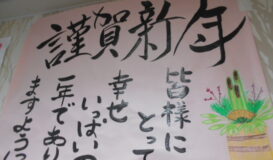 謹賀新年
皆様にとって
幸せいっぱいの
一年であり
ますように